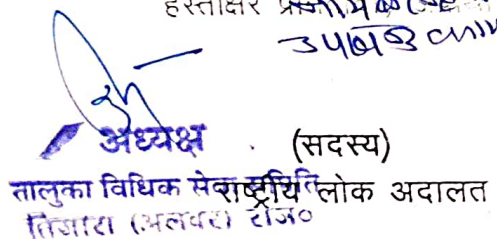 हस्ताक्षर
अध्यक्ष (सदस्य)
तालुका विधिक सेवा समिति राष्ट्रीय लोक अदालत
तिजारा (अलवर) राज०